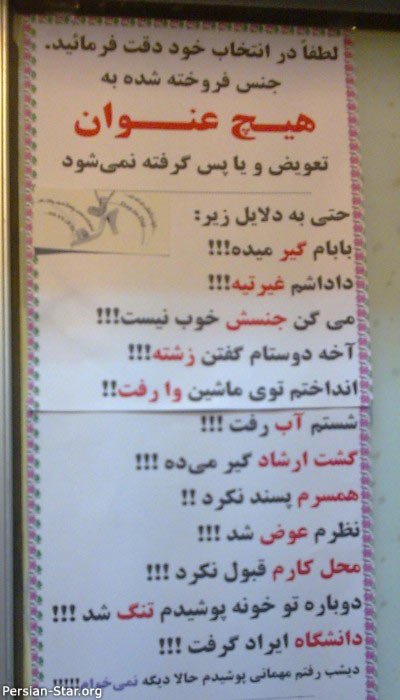 لطفاً در انتخاب خود دقت فرمائید.
جنس فروخته شده به
هیـــچ عنــــوان
تعویض و یا پس گرفته نمی‌شود
حتی به دلایل زیر:
بابام گیر میده!!!
داداشم غیرتیه!!!
می گن جنسش خوب نیست!!!
آخه دوستام گفتن زشته!!!
انداختم توی ماشین وا رفت!!
شستم آب رفت !!!
گشت ارشاد گیر می‌ده !!!
همسرم پسند نکرد !!
نظرم عوض شد !!!
محل کارم قبول نکرد !!!
دوباره تو خونه پوشیدم تنگ شد !!!
دانشگاه ایراد گرفت !!!
دیشب رفتم مهمانی پوشیدم حالا دیگه نمی‌خوام!!!!!
Persian-Star.org